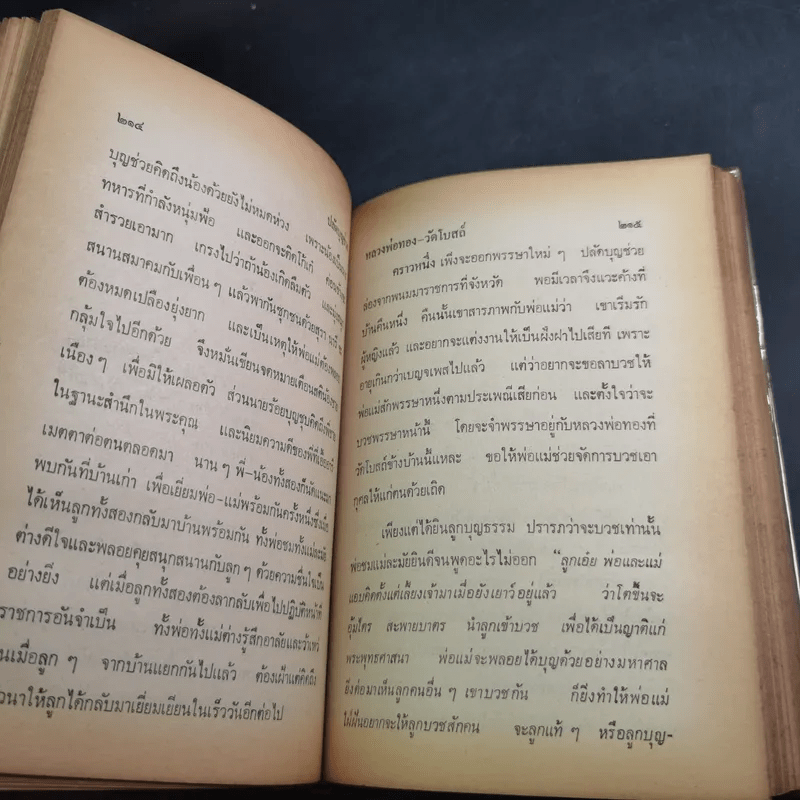 ๒๑๔
บุญช่วยคิดถึงน้องด้วยยังไม่หมดห่วง เพราะน้องเป็น
ทหารที่กำลังหนุ่มพ้อ และออกจะติดโก้เก๋ ค่อนข้าง
สำรวยเอามาก เกรงไปว่าถ้าน้องเกิดลืมตัว
สนานสมาคมกับเพื่อนๆ แล้วพากันซุกซนด้วยสุรา นารี
ต้องหมดเปลืองยุ่งยาก และเป็นเหตุให้พ่อแม่ต้อง
กลุ้มใจไปอีกด้วย จึงหมั่นเขียนจดหมายเตือนสติน้อง
เนืองๆ เพื่อมิให้เผลอตัว ส่วนนายร้อยบุญชุบคิดถึงพี่ชาย
ในฐานะสำนึกในพระคุณ และนิยมความดีของพี่ที่
เมตตาต่อตนตลอดมา นานๆ พี่-น้องทั้งสองก็นัดแนะมา
พบกันที่บ้านเก่า เพื่อเยี่ยมพ่อ-แม่พร้อมกันครั้งหนึ่งซึ่งเมื่อ
ได้เห็นลูกทั้งสองกลับมาบ้านพร้อมกัน ทั้งพ่อชมทั้งแม่ละมัย
ต่างดีใจและพลอยคุยสนุกสนานกับลูกๆ ด้วยความชื่นใจเป็น
อย่างยิ่ง แต่เมื่อลูกทั้งสองต้องลากลับเพื่อไปปฏิบัติหน้าที่
ราชการอันจำเป็น ทั้งพ่อทั้งแม่ต่างรู้สึกอาลัยและว้าเหว่
นเมื่อลูกๆ จากบ้านแยกกันไปแล้ว ต้องเฝ้าแต่คิดถึง
วนาให้ลูกได้กลับมาเยี่ยมเยียนในเร็ววันอีกต่อไป
หลวงพ่อทอง-วัดโบสถ์ ๒๑๕
คราวหนึ่ง เพิ่งจะออกพรรษาใหม่ๆ ปลัดบุญช่วย
ล่องจากพนมมาราชการที่จังหวัด พอมีเวลาจึงแวะค้างที่
บ้านคืนหนึ่ง คืนนั้นเขาสารภาพกับพ่อแม่ว่า เขาเริ่มรัก
ผู้หญิงแล้ว และอยากจะแต่งงานให้เป็นฝั่งฝาไปเสียที เพราะ
อายุเกินกว่าเบญจเพสไปแล้ว แต่ว่าอยากจะขอลาบวชให้
พ่อแม่สักพรรษาหนึ่งตามประเพณีเสียก่อน และตั้งใจว่าจะ
บวชพรรษาหน้านี้ โดยจะจำพรรษาอยู่กับหลวงพ่อทองที่
วัดโบสถ์ข้างบ้านนี้แหละ ขอให้พ่อแม่ช่วยจัดการบวชเอา
กุศลให้แก่ตนด้วยเถิด
เพียงแต่ได้ยินลูกบุญธรรม ปรารภว่าจะบวชเท่านั้น
พ่อชมแม่ละมัยยินดีจนพูดอะไรไม่ออก “ลูกเอ๋ย พ่อและแม่
แอบคิดตั้งแต่เลี้ยงเจ้ามาเมื่อยังเยาว์อยู่แล้ว ว่าโตขึ้นจะ
อุ้มไตร สะพายบาตร นำลูกเข้าบวช เพื่อได้เป็นญาติแก่
พระพุทธศาสนา พ่อแม่จะพลอยได้บุญด้วยอย่างมหาศาล
ยิ่งต่อมาเห็นลูกคนอื่นๆ เขาบวชกัน ก็ยิ่งทำให้พ่อแม่
ใฝ่ฝันอยากจะให้ลูกบวชสักคน จะลูกแท้ๆ หรือลูกบุญ-